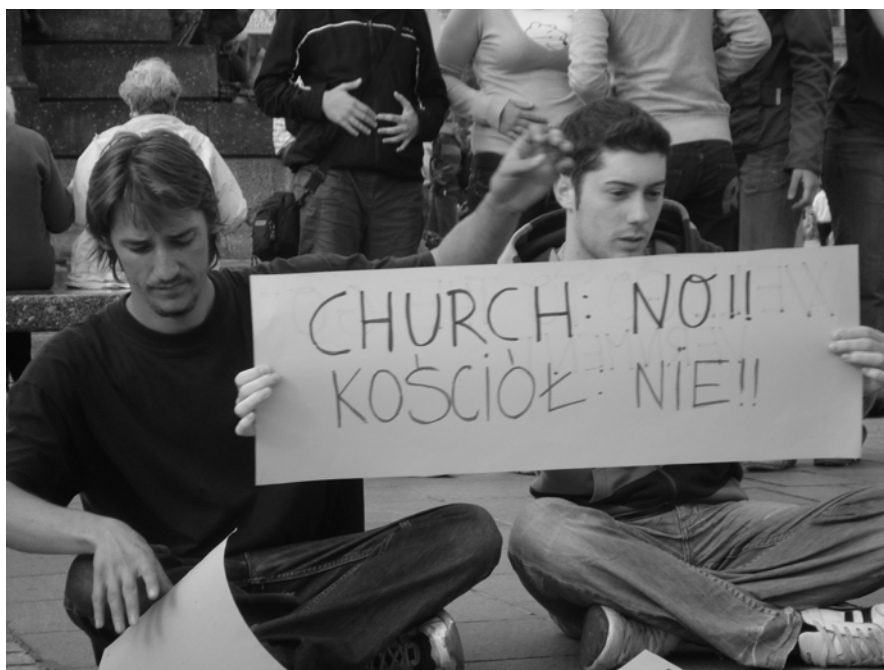 CHURCH: NO!!
KOŚCIÒŁ: NIE!!